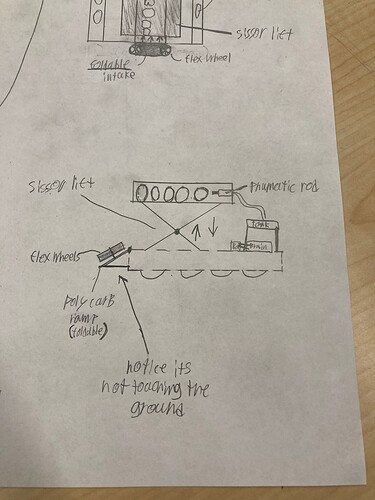 sissor liet
foldable
intake
flex wheel
sissor liet
phumatic rod
tank
Brain
flex wheels
poly carb
ramp
(foldable)
notice its
not touching the
ground